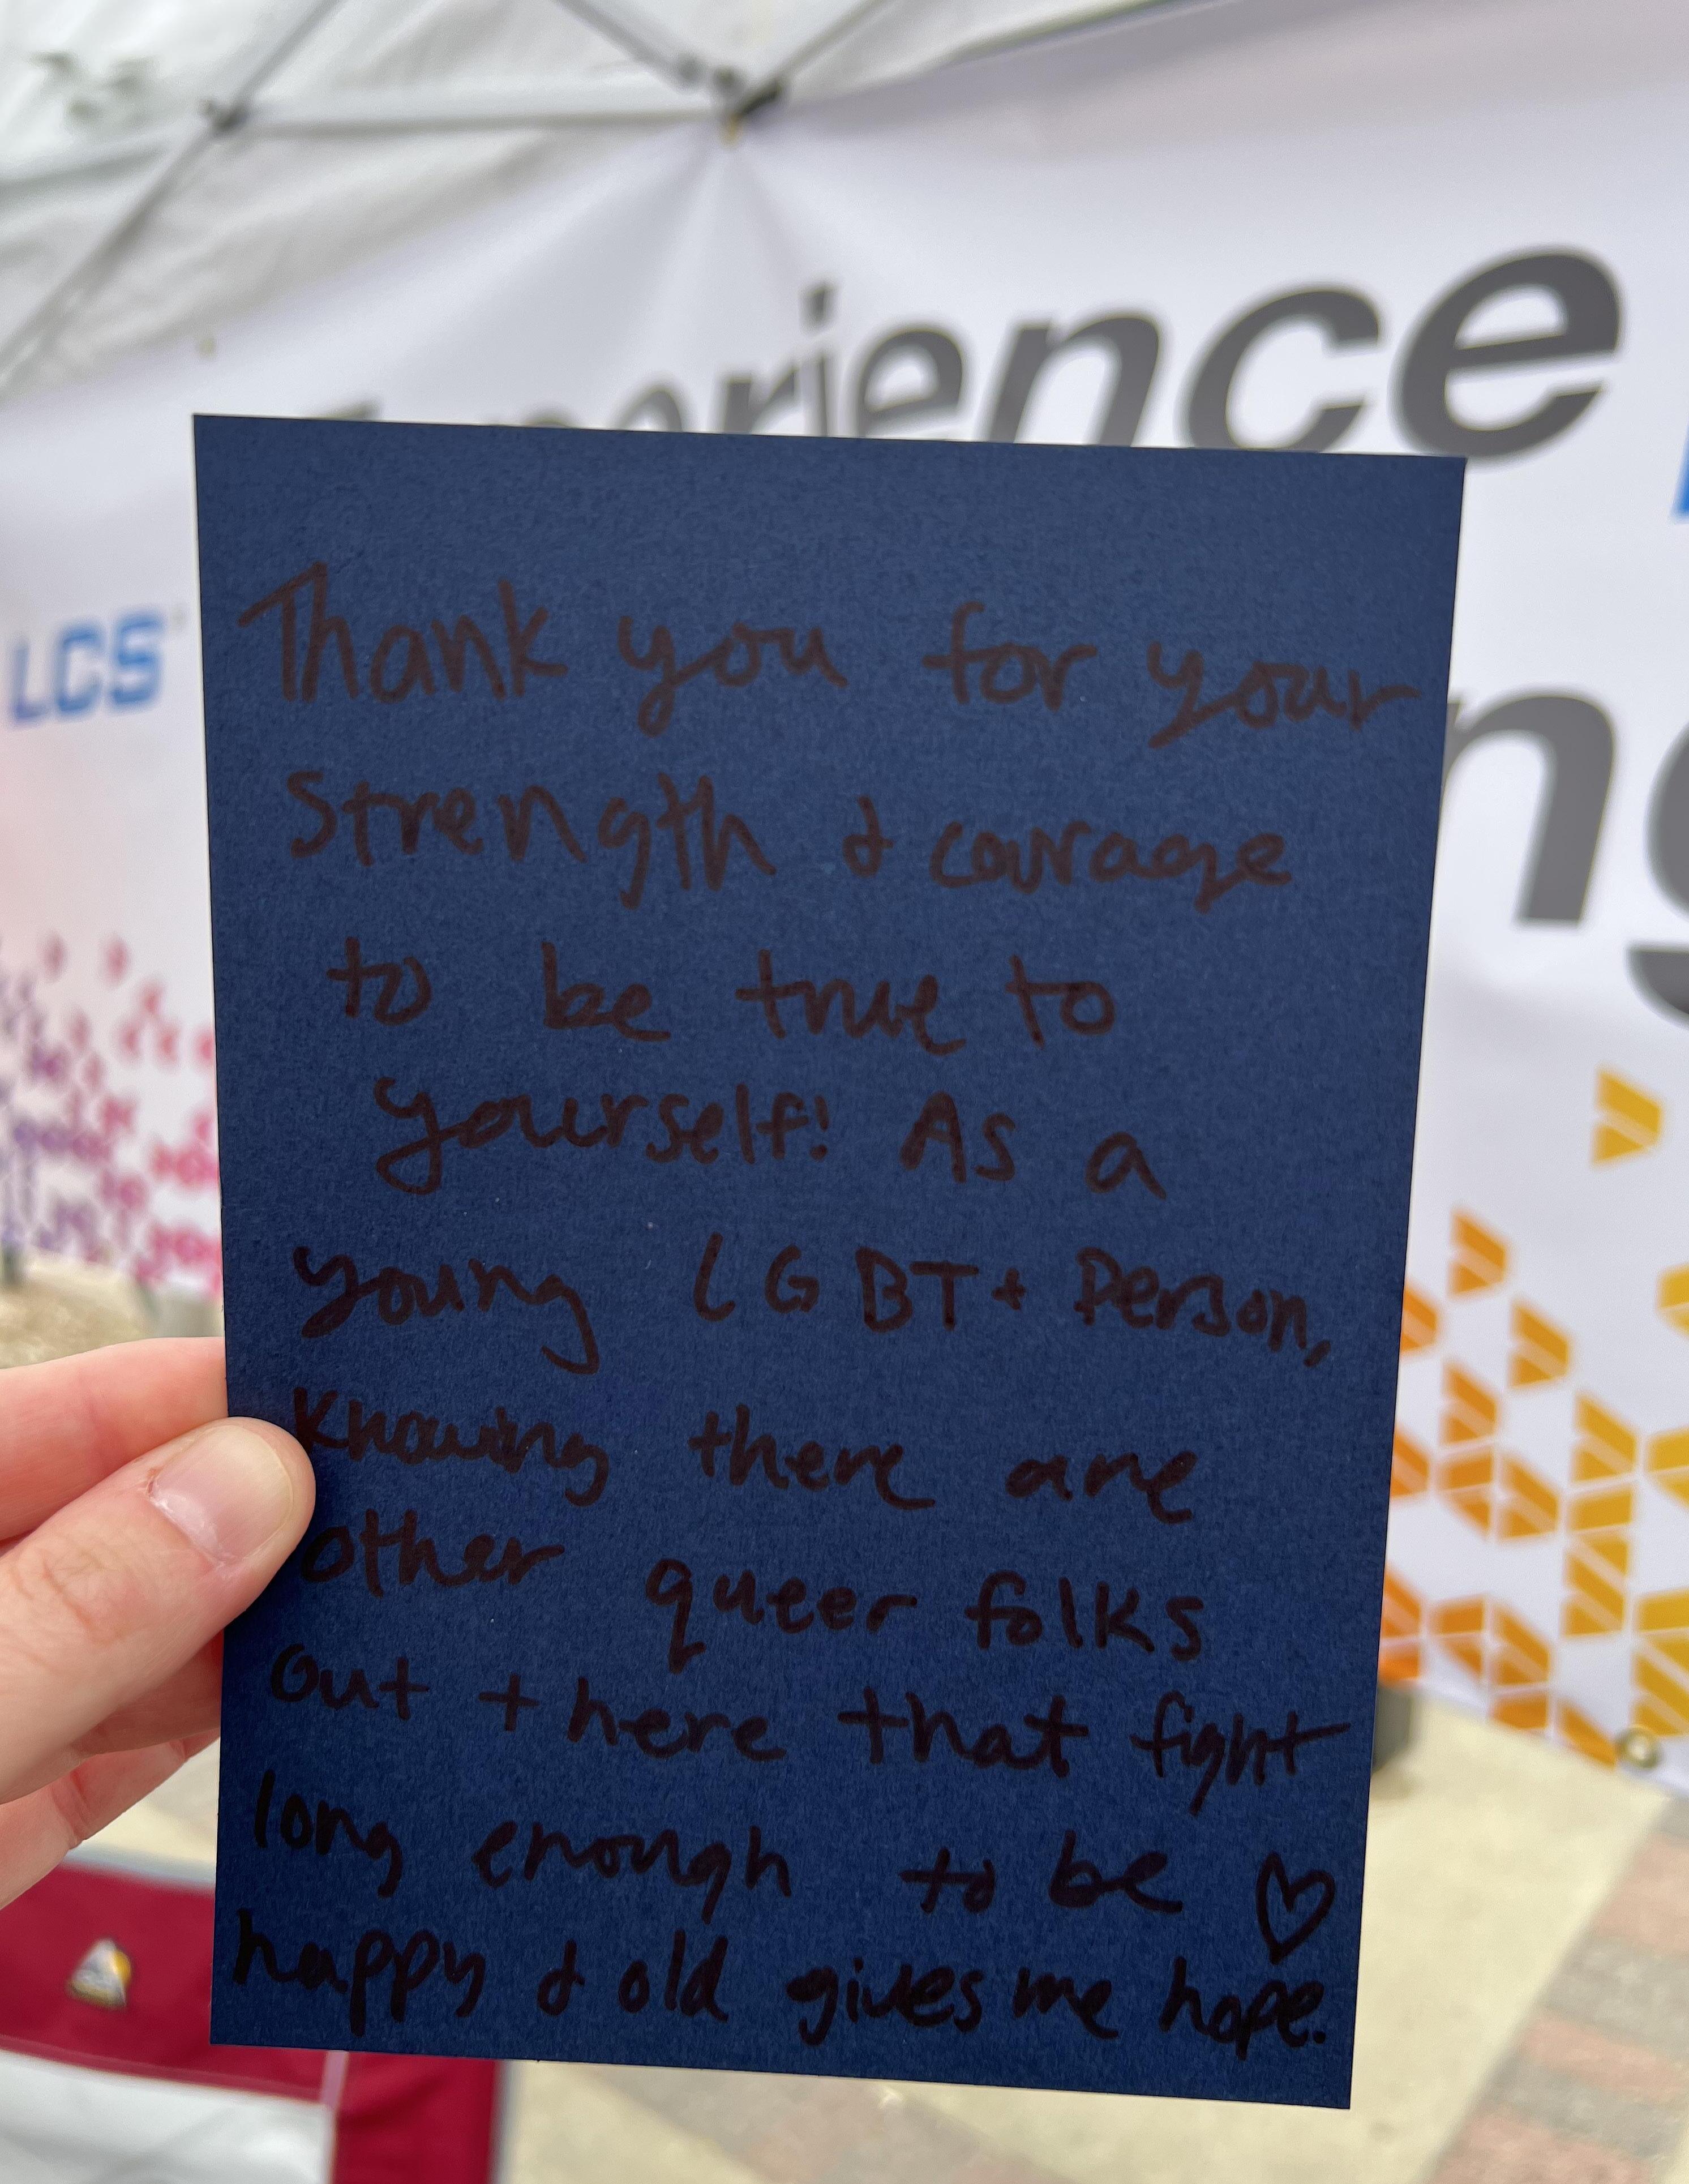 perience
LCS
ng
Thank you for your
strength & courage
to be true to
yourself! As a
young LGBT+ Person,
Knowing there are
other queer folks
out there that fight
long enough to be ♡
happy & old gives me hope.